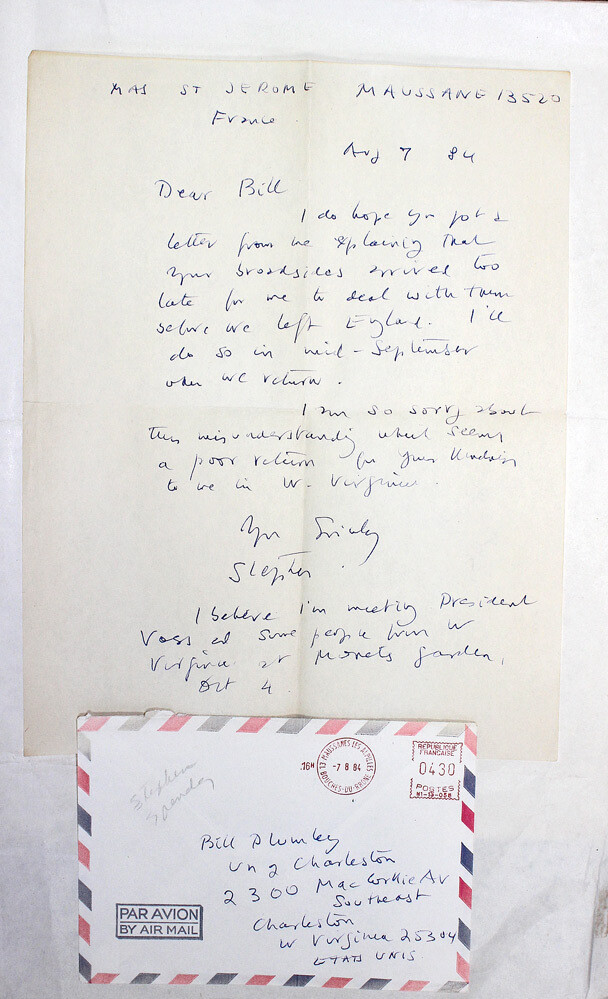 MAS ST JEROME MAUSSANE 13520
France.
Aug 7 84
Dear Bill
I do hope you got a
letter from me explaining that
your broadsides arrived too
late for me to deal with them
before we left England. I'll
do so in mid-September
when we return.
I am so sorry about
this misunderstanding which seems
a poor return for your kindness
to me in W. Virginia.
Yrs Sincerely
Stephen.
I believe I'm meeting President
Voss and some people from W
Virginia at Monets garden,
Oct 4
Stephen
Spender
16H
13 MAUSSANE LES ALPILLES
-7 8 84
BOUCHES-DU-RHONE
REPUBLIQUE
FRANCAISE
0430
POSTES
Bill Plumley
Un of Charleston
2300 MacCorkle Av
Southeast
Charleston
W Virginia 25304
ETATS UNIS
PAR AVION
BY AIR MAIL